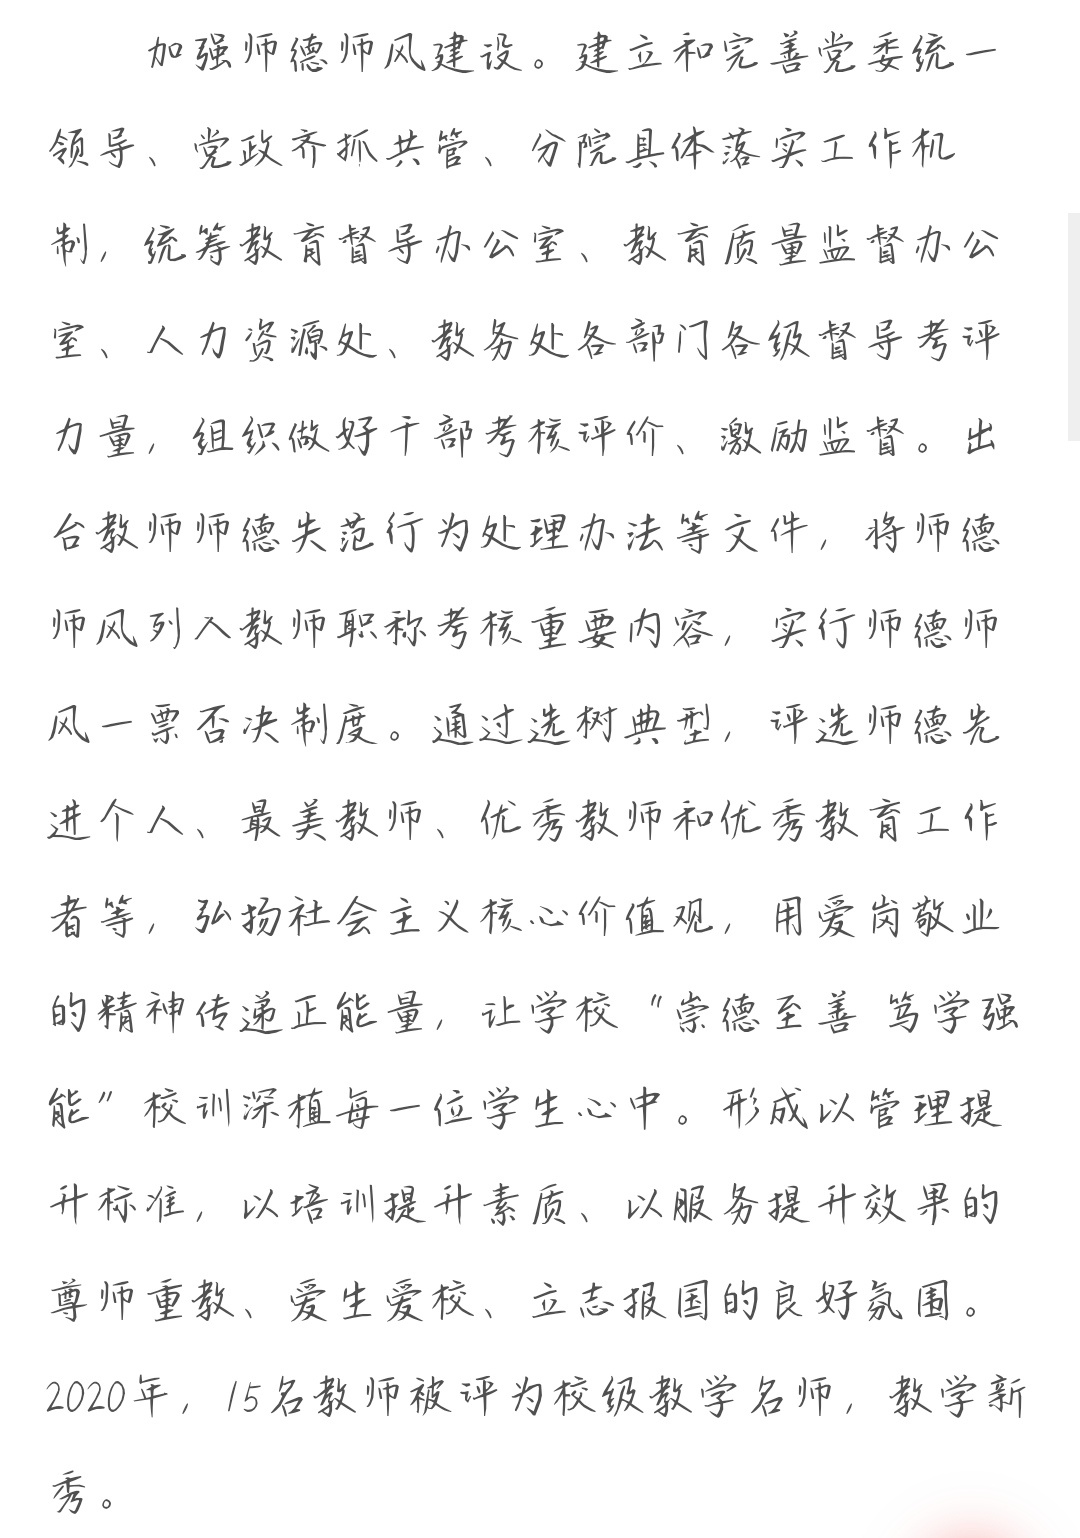 加强师德师风建设。建立和完善党委统一
领导、党政齐抓共管、分院具体落实工作机
制，统筹教育督导办公室、教育质量监督办公
室、人力资源处、教务处各部门各级督导考评
力量，组织做好干部考核评价、激励监督。出
台教师师德失范行为处理办法等文件，将师德
师风列入教师职称考核重要内容，实行师德师
风一票否决制度。通过选树典型，评选师德先
进个人、最美教师、优秀教师和优秀教育工作
者等，弘扬社会主义核心价值观，用爱岗敬业
的精神传递正能量，让学校“崇德至善 笃学强
能”校训深植每一位学生心中。形成以管理提
升标准，以培训提升素质、以服务提升效果的
尊师重教、爱生爱校、立志报国的良好氛围。
2020年，15名教师被评为校级教学名师，教学新
秀。